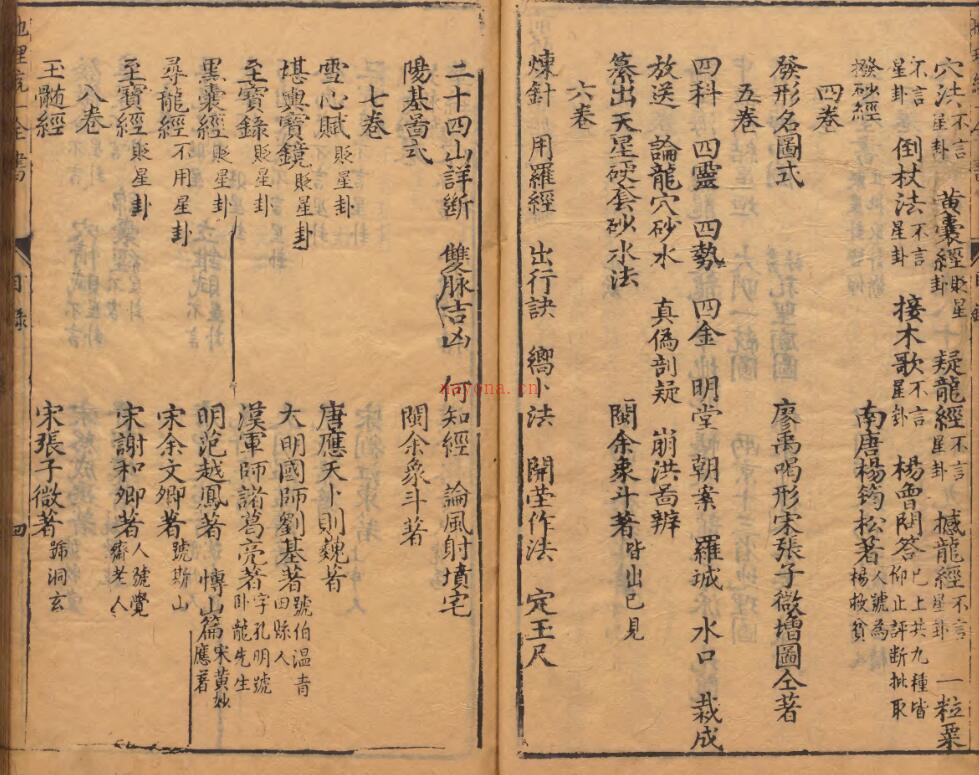 穴法不言星卦 黃囊經貶星卦 疑龍經不言星卦 撼龍經不言星卦 一粒粟
不言星卦 倒杖法不言星卦 接木歌不言星卦 楊曾問答已上共九種皆仰止評斷批取
撥砂經 南唐楊筠松著人號為楊救貧
四卷
發形名圖式 廖禹喝形宋張子微增圖仝著
五卷
四科 四靈 四勢 四金 明堂朝案 羅城 水口 裁成
放送 論龍穴砂水 真偽剖疑 崩洪啚辨
纂出天星硬套砂水法 閩余象斗著皆出已見
六卷
煉針 用羅經 出行訣 嚮卜法 開塋作法 定玉尺
二十四山詳斷 雙脉吉凶 何知經 論風射墳宅
陽基啚式 閩余象斗著
七卷
雪心賦貶星卦 唐應天卜則巍著
堪輿寶鏡貶星卦 大明國師劉基著號伯溫青田縣人
至寶錄貶星卦 漢軍師諸葛亮著字孔明號卧龍先生
黑囊經貶星卦 明范越鳳著 博山篇宋黃妙應著
尋龍經不用星卦 宋余文卿著號斯山
至寶經貶星卦 宋謝和卿著人號覺齋老人
八卷
玉髓經 宋張子微著號洞玄
地理統一全書
目錄
四
nayona.cn